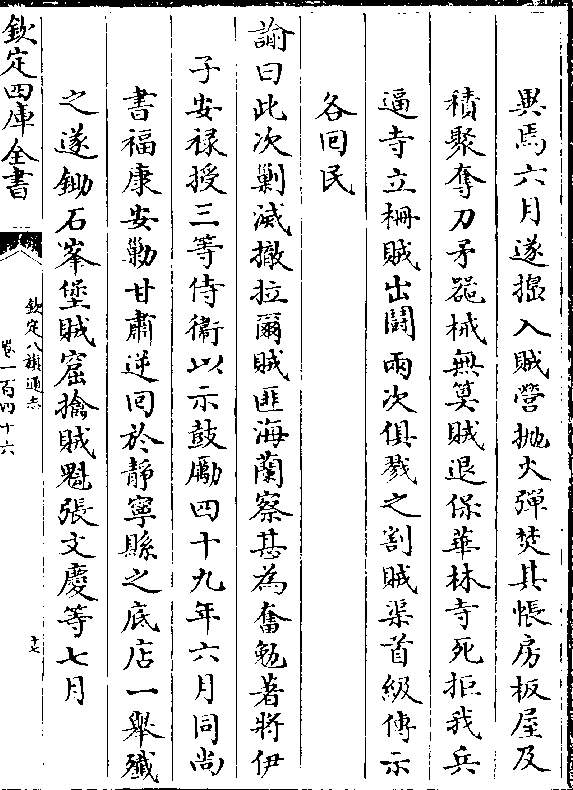 異焉六月遂搗入賊營拋火彈焚其帳房板屋及
積聚奪刀矛器械無算賊退保華林寺死拒我兵
逼寺立柵賊出鬬兩次俱戮之割賊渠首級傳示
各回民
諭曰此次剿滅撒拉爾賊匪海蘭察甚為奮勉著將伊
子安祿授三等侍衞以示鼓勵四十九年六月同尚
書福康安勦甘肅逆回於靜寧縣之底店一舉殲
之遂鋤石峯堡賊窟擒賊魁張文慶等七月
欽定四庫全書
欽定八旗通志
卷一百四十六
十七